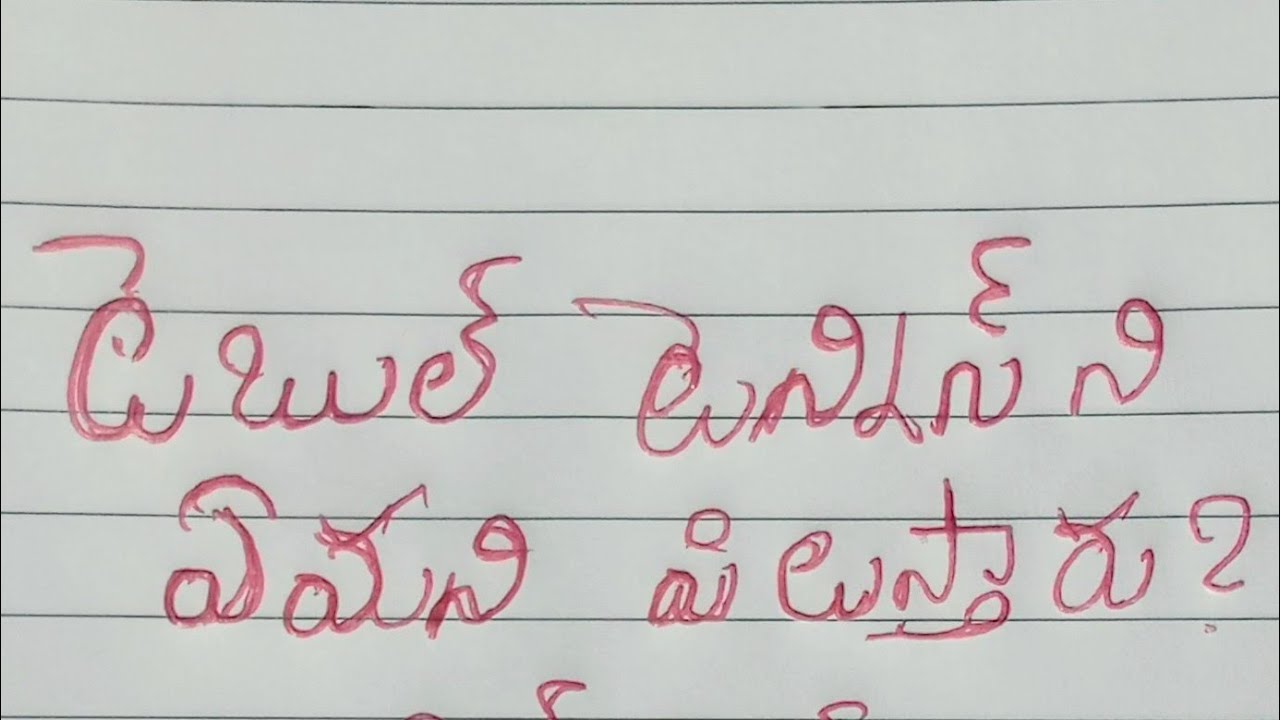 డెబుల్ టెనిస్ ని
ఏమని పిలుస్తారు?